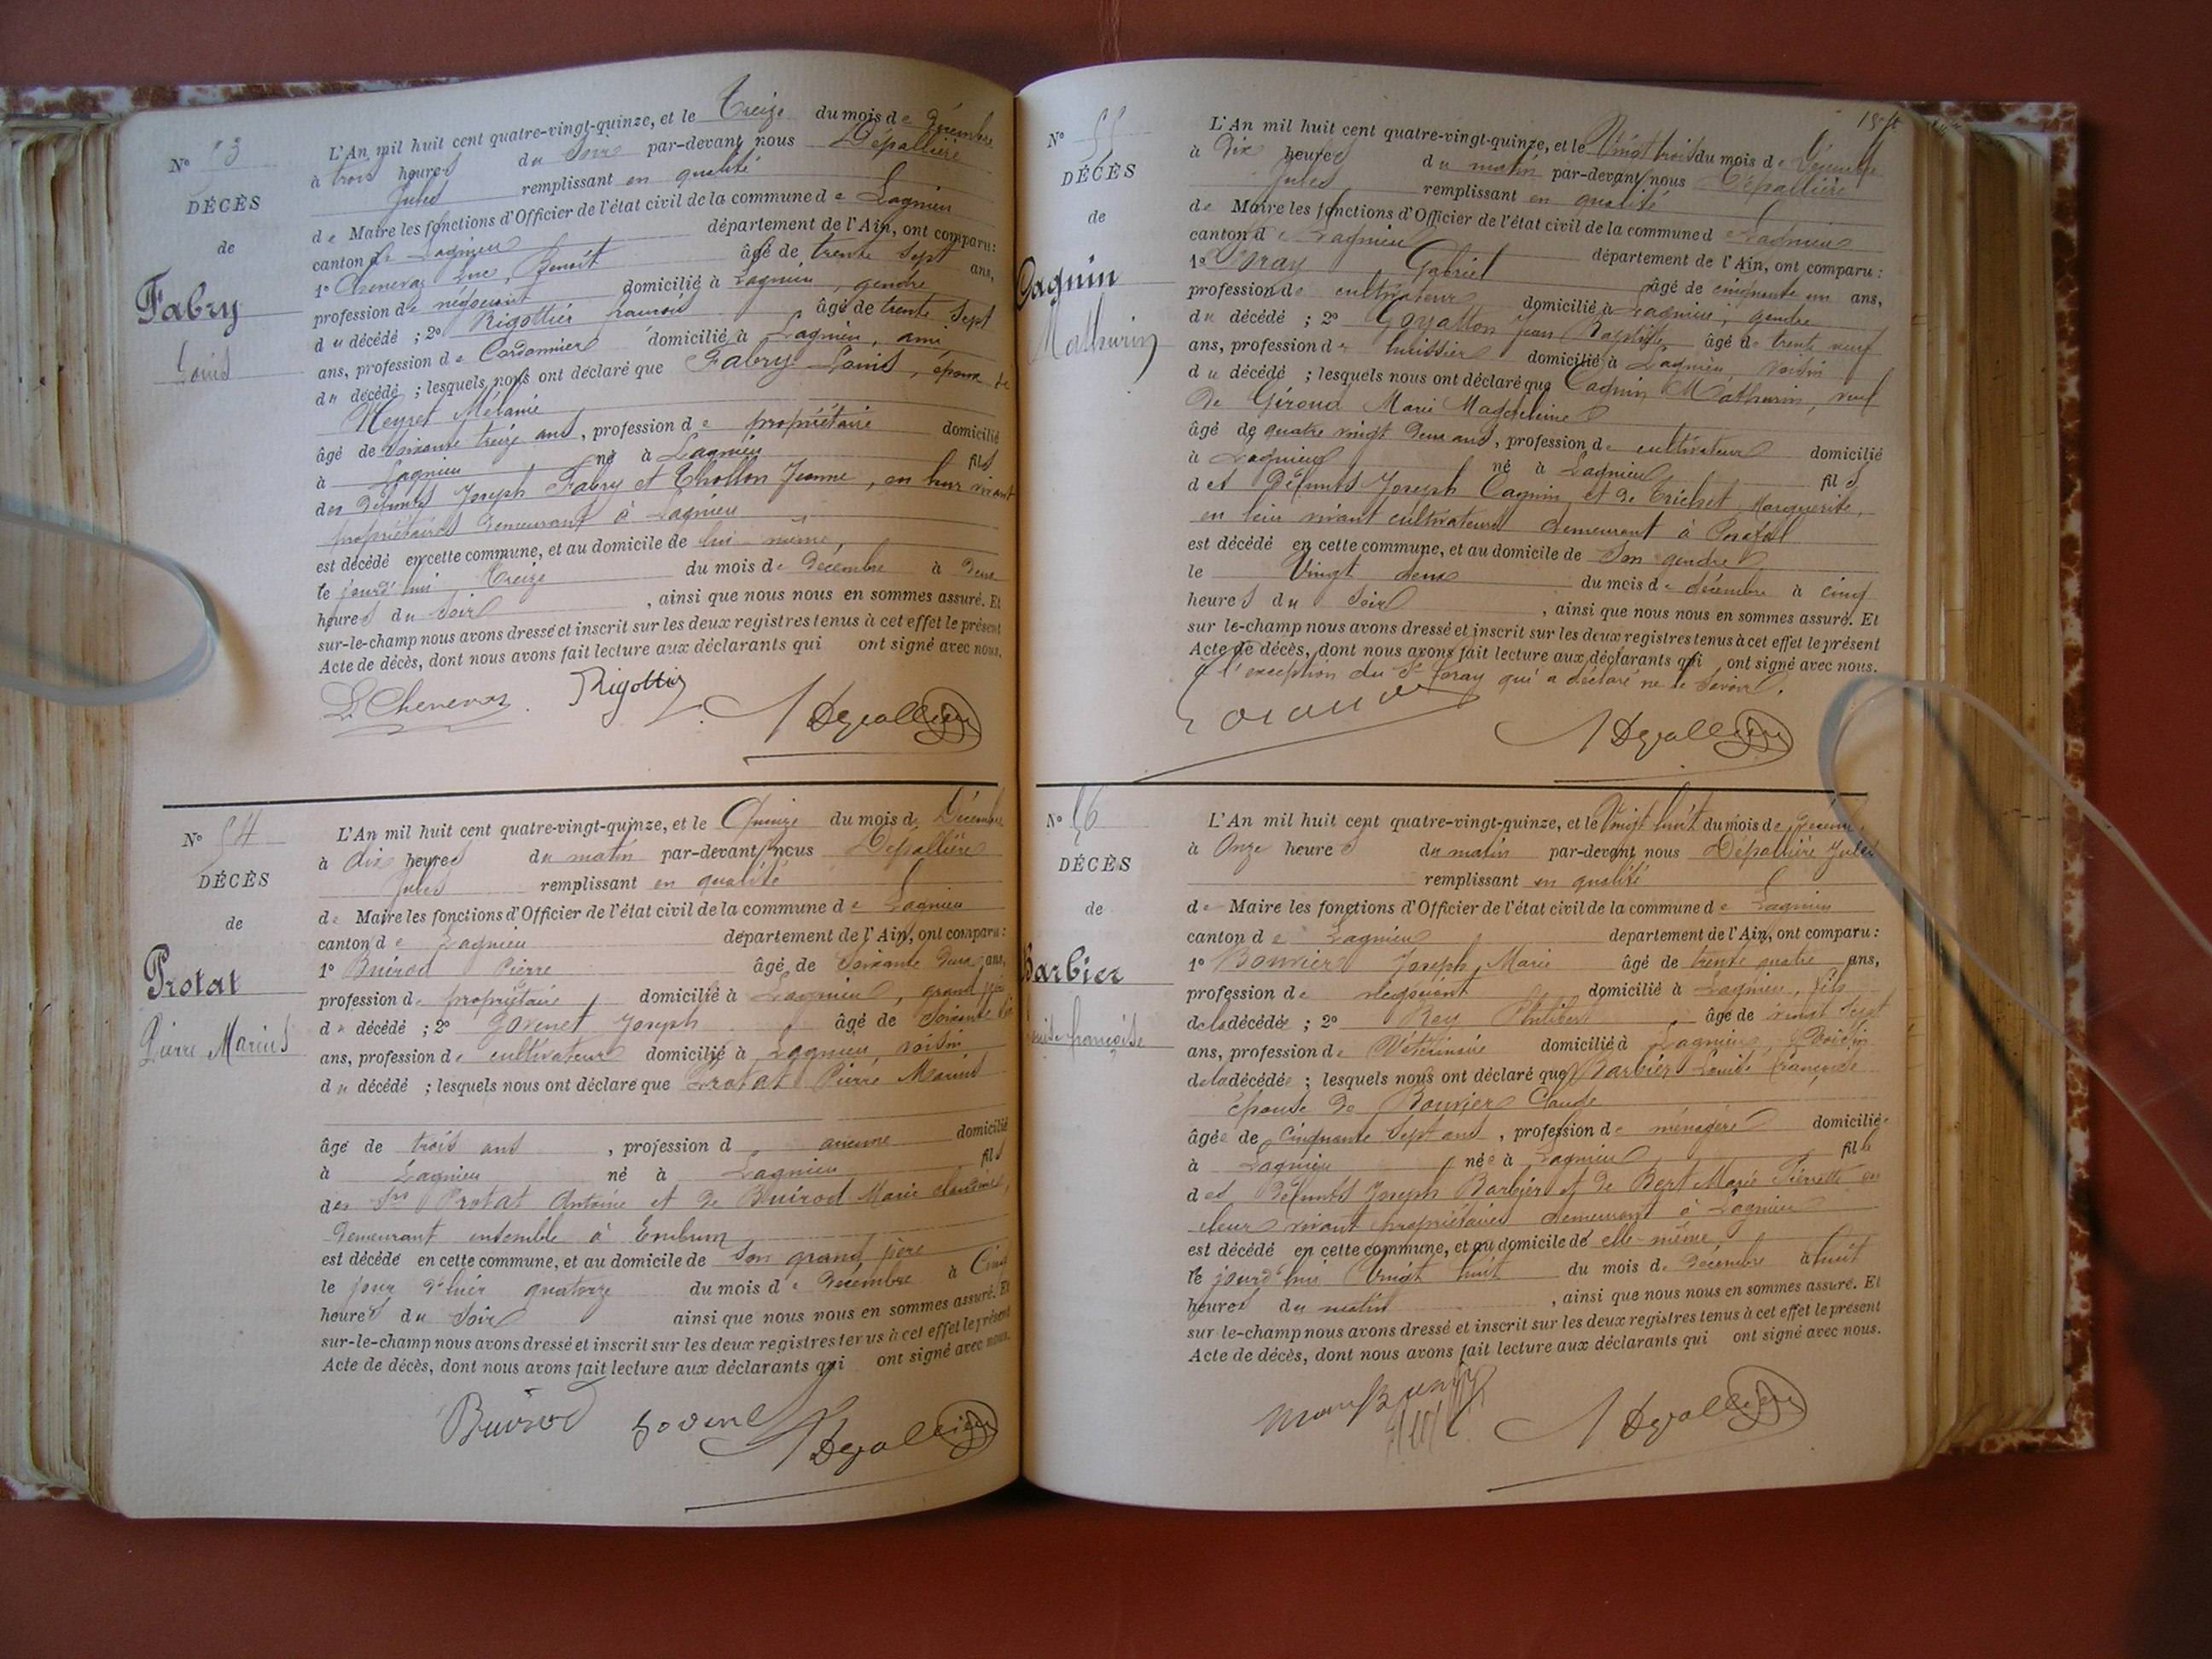 N° 53
DÉCÈS
de
Fabry
Louis
L'An mil huit cent quatre-vingt-quinze, et le Treize du mois de Décembre
à trois heures du Soir par-devant nous Dépallière
Jules remplissant en qualité
de Maire les fonctions d'Officier de l'état civil de la commune de Lagnieu
canton de Lagnieu département de l'Ain, ont comparu:
1° Chenevaz Luc, Benoît âgé de trente sept ans,
profession de négociant domicilié à Lagnieu, gendre
du décédé ; 2° Rigottier François âgé de trente sept
ans, profession de Cordonnier domicilié à Lagnieu, ami
du décédé ; lesquels nous ont déclaré que Fabry Louis, époux de
Neyret Mélanie
âgé de Soixante treize ans, profession de propriétaire domicilié
à Lagnieu né à Lagnieu fils
des défunts Joseph Fabry et Thollon Jeanne, en leur vivant
propriétaires demeurant à Lagnieu
est décédé en cette commune, et au domicile de lui-même,
le jourd'hui Treize du mois de Décembre à deux
heures du Soir , ainsi que nous nous en sommes assuré. Et
sur-le-champ nous avons dressé et inscrit sur les deux registres tenus à cet effet le présent
Acte de décès, dont nous avons fait lecture aux déclarants qui ont signé avec nous.
L. Chenevaz Rigottier J Depallière
N° 54
DÉCÈS
de
Protat
Pierre Marius
L'An mil huit cent quatre-vingt-quinze, et le Quinze du mois de Décembre
à dix heures du matin par-devant nous Dépallière
Jules remplissant en qualité
de Maire les fonctions d'Officier de l'état civil de la commune de Lagnieu
canton de Lagnieu département de l'Ain, ont comparu:
1° Buirod Pierre âgé de Soixante deux ans,
profession de propriétaire domicilié à Lagnieu, grand père
du décédé ; 2° Govenet Joseph âgé de Soixante
ans, profession de cultivateur domicilié à Lagnieu, voisin
du décédé ; lesquels nous ont déclaré que Protat Pierre Marius
âgé de trois ans , profession d aucune domicilié
à Lagnieu né à Lagnieu fils
des Srs Protat Antoine et de Buirod Marie
demeurant ensemble à Embrun
est décédé en cette commune, et au domicile de Son grand père
le jour d'hier quatorze du mois de Décembre à Cinq
heures du Soir ainsi que nous nous en sommes assuré. Et
sur-le-champ nous avons dressé et inscrit sur les deux registres tenus à cet effet le présent
Acte de décès, dont nous avons fait lecture aux déclarants qui ont signé avec nous.
Buirod J Depallière
N° 55
DÉCÈS
de
Cagnin
Mathurin
L'An mil huit cent quatre-vingt-quinze, et le Vingt trois du mois de Décembre
à Dix heures du matin par-devant nous Dépallière
Jules remplissant en qualité
de Maire les fonctions d'Officier de l'état civil de la commune de Lagnieu
canton de Lagnieu département de l'Ain, ont comparu :
1° Gabriel âgé de cinquante un ans,
profession de cultivateur domicilié à Lagnieu, gendre
du décédé ; 2° Goyatton Jean Baptiste âgé de trente neuf
ans, profession de huissier domicilié à Lagnieu, voisin
du décédé ; lesquels nous ont déclaré que Cagnin Mathurin, veuf
de Giroud Marie Magdeleine
âgé de quatre vingt deux ans, profession de cultivateur domicilié
à Lagnieu né à Lagnieu fils
des Défunts Joseph Cagnin et de Trichet Marguerite,
en leur vivant cultivateurs demeurant à Posafol
est décédé en cette commune, et au domicile de Son gendre
le Vingt deux du mois de décembre à cinq
heures du Soir , ainsi que nous nous en sommes assuré. Et
sur le-champ nous avons dressé et inscrit sur les deux registres tenus à cet effet le présent
Acte de décès, dont nous avons fait lecture aux déclarants qui ont signé avec nous.
à l'exception du Sr qui a déclaré ne le savoir.
J Depallière
N° 56
DÉCÈS
de
Barbier
Louise françoise
L'An mil huit cent quatre-vingt-quinze, et le Vingt huit du mois de Décembre
à Onze heures du matin par-devant nous Dépallière Jules
remplissant en qualité
de Maire les fonctions d'Officier de l'état civil de la commune de Lagnieu
canton de Lagnieu departement de l'Ain, ont comparu :
1° Bouvier Joseph, Marie âgé de trente quatre ans,
profession de négociant domicilié à Lagnieu, fils
de la décédée ; 2° Rey Philibert âgé de vingt sept
ans, profession de Vétérinaire domicilié à Lagnieu, Voisin
de la décédée ; lesquels nous ont déclaré que Barbier Louise Françoise
épouse de Bouvier Claude
âgée de Cinquante Sept ans , profession de ménagère domiciliée
à Lagnieu née à Lagnieu fille
des Défunts Joseph Barbier et de Bert Marie Pierrette en
leur vivant propriétaires demeurant à Lagnieu
est décédé en cette commune, et au domicile de elle-même
le jourd'hui Vingt huit du mois de décembre à huit
heures du matin , ainsi que nous nous en sommes assuré. Et
sur le-champ nous avons dressé et inscrit sur les deux registres tenus à cet effet le présent
Acte de décès, dont nous avons fait lecture aux déclarants qui ont signé avec nous.
J Depallière